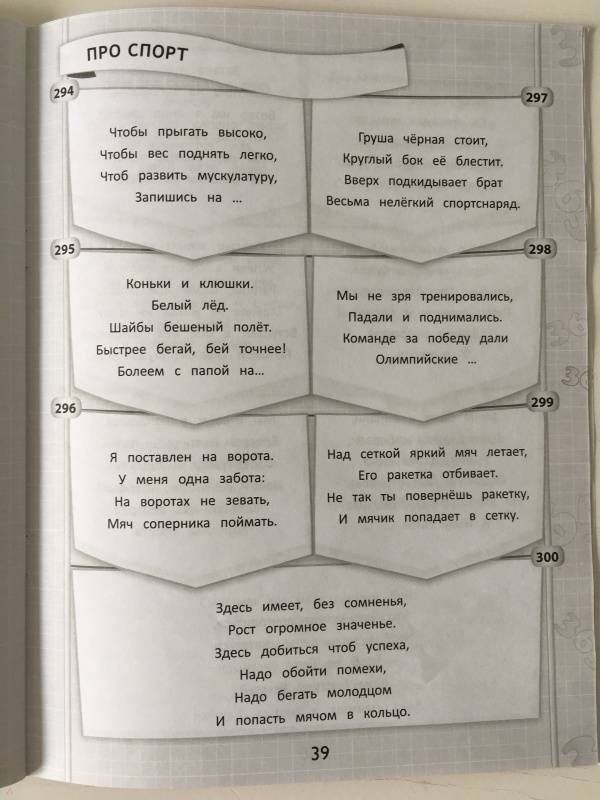 ПРО СПОРТ
294
Чтобы прыгать высоко,
Чтобы вес поднять легко,
Чтоб развить мускулатуру,
Запишись на ...
295
Коньки и клюшки.
Белый лёд.
Шайбы бешеный полёт.
Быстрее бегай, бей точнее!
Болеем с папой на...
296
Я поставлен на ворота.
У меня одна забота:
На воротах не зевать,
Мяч соперника поймать.
297
Груша чёрная стоит,
Круглый бок её блестит.
Вверх подкидывает брат
Весьма нелёгкий спортснаряд.
298
Мы не зря тренировались,
Падали и поднимались.
Команде за победу дали
Олимпийские ...
299
Над сеткой яркий мяч летает,
Его ракетка отбивает.
Не так ты повернёшь ракетку,
И мячик попадает в сетку.
300
Здесь имеет, без сомненья,
Рост огромное значенье.
Здесь добиться чтоб успеха,
Надо обойти помехи,
Надо бегать молодцом
И попасть мячом в кольцо.
39